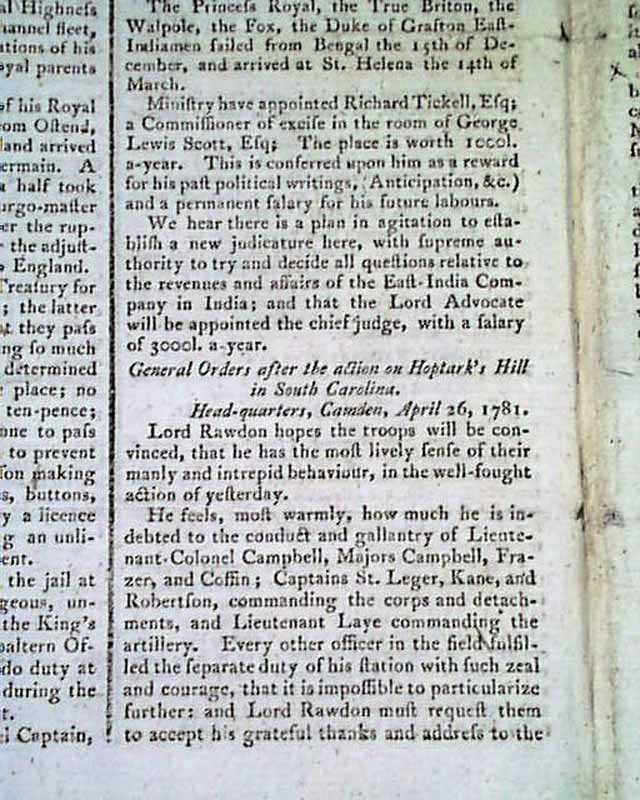 al Highness
hannel fleet,
ations of his
oyal parents
of his Royal
om Oſtend,
land arrived
ermain. A
a half took
urgo-maſter
er the rup-
r the adjuſt-
o England.
Treaſury for
; the latter
at they paſs
ng ſo much
determined
place; no
ten-pence;
one to paſs
to prevent
ſon making
s, buttons,
y a licence
g an unli-
ent.
the jail at
geous, un-
the King's
baltern Of-
do duty at
during the
t.
i Captain,
The Princeſs Royal, the True Briton, the
Walpole, the Fox, the Duke of Grafton Eaſt-
Indiamen ſailed from Bengal the 15th of De-
cember, and arrived at St. Helena the 14th of
March.
Miniſtry have appointed Richard Tickell, Eſq;
a Commiſſioner of exciſe in the room of George
Lewis Scott, Eſq; The place is worth 1000l.
a-year. This is conferred upon him as a reward
for his paſt political writings, (Anticipation, &c.)
and a permanent ſalary for his future labours.
We hear there is a plan in agitation to eſta-
bliſh a new judicature here, with ſupreme au-
thority to try and decide all queſtions relative to
the revenues and affairs of the Eaſt-India Com-
pany in India; and that the Lord Advocate
will be appointed the chief judge, with a ſalary
of 3000l. a-year.
General Orders after the action on Hoptark's Hill
in South Carolina.
Head-quarters, Camden, April 26, 1781.
Lord Rawdon hopes the troops will be con-
vinced, that he has the moſt lively ſenſe of their
manly and intrepid behaviour, in the well-fought
action of yeſterday.
He feels, moſt warmly, how much he is in-
debted to the conduct and gallantry of Lieute-
nant-Colonel Campbell, Majors Campbell, Fra-
zer, and Coffin; Captains St. Leger, Kane, and
Robertſon, commanding the corps and detach-
ments, and Lieutenant Laye commanding the
artillery. Every other officer in the field fulfil-
led the ſeparate duty of his ſtation with ſuch zeal
and courage, that it is impoſſible to particularize
further: and Lord Rawdon muſt requeſt them
to accept his grateful thanks and addreſs to the